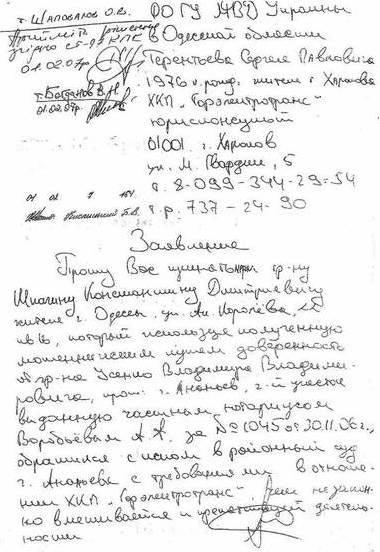 т. Шаповалов О.В.
01.02.07р
т. Богданов В.Н
01.02.07р.
РО ГУ МВД Украины
в Одесской области
Терентьева Сергея Павловича
1976 г. рожд. жителя г Харькова
ХКП „Горэлектротранс"
юрисконсульт
61001 г. Харьков
ул. М. Гвардии, 5
т. 8-099-344-29-54
т. р. 737-24-90
01 02 7 151
Заявление
Прошу Вас принять меры гр-ну
Шпагину Константину Дмитриевичу
жителя г. Одессы ул. Ак. Королёва,
кв 16, который используя полученную
мошенническим путем доверенность
от гр-на Усенко Владимира Владими-
ровича, прож. г. Ананьев, 2-й участок
выданную частным нотариусом
Воробьёвым А.А. за № 1045 от 30.11.06 г.,
обратился с иском в районный суд
г. Ананьева с требованиями в отноше-
нии ХКП „Горэлектротранс" чем незакон-
но вмешивается и препятствует деятель-
ности